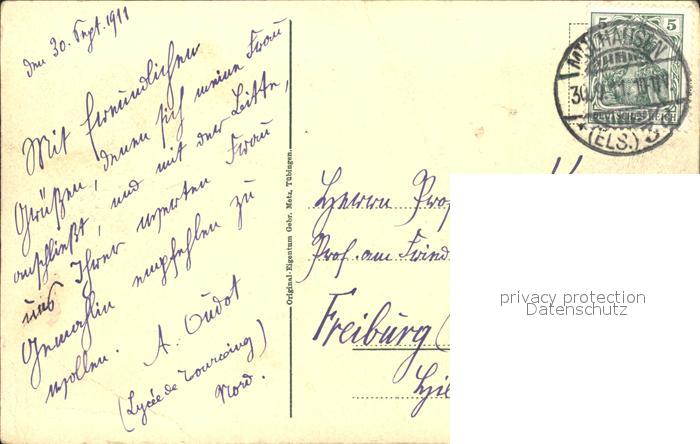 den 30. Sept. 1911
Mit freundlichen
Grüßen, denen sich meine Frau
anschließt, und mit der Bitte,
uns Ihrer werten Frau
Gemahlin empfehlen zu
wollen. A. Oudot
(Lycée de Tourcoing)
Nord.
Original-Eigentum Gebr. Metz, Tübingen.
5 5
MÜLHAUSEN
30.9.11
* (ELS.) 3
Herrn Prof
Prof. am Fried
Freiburg (
privacy protection
Datenschutz